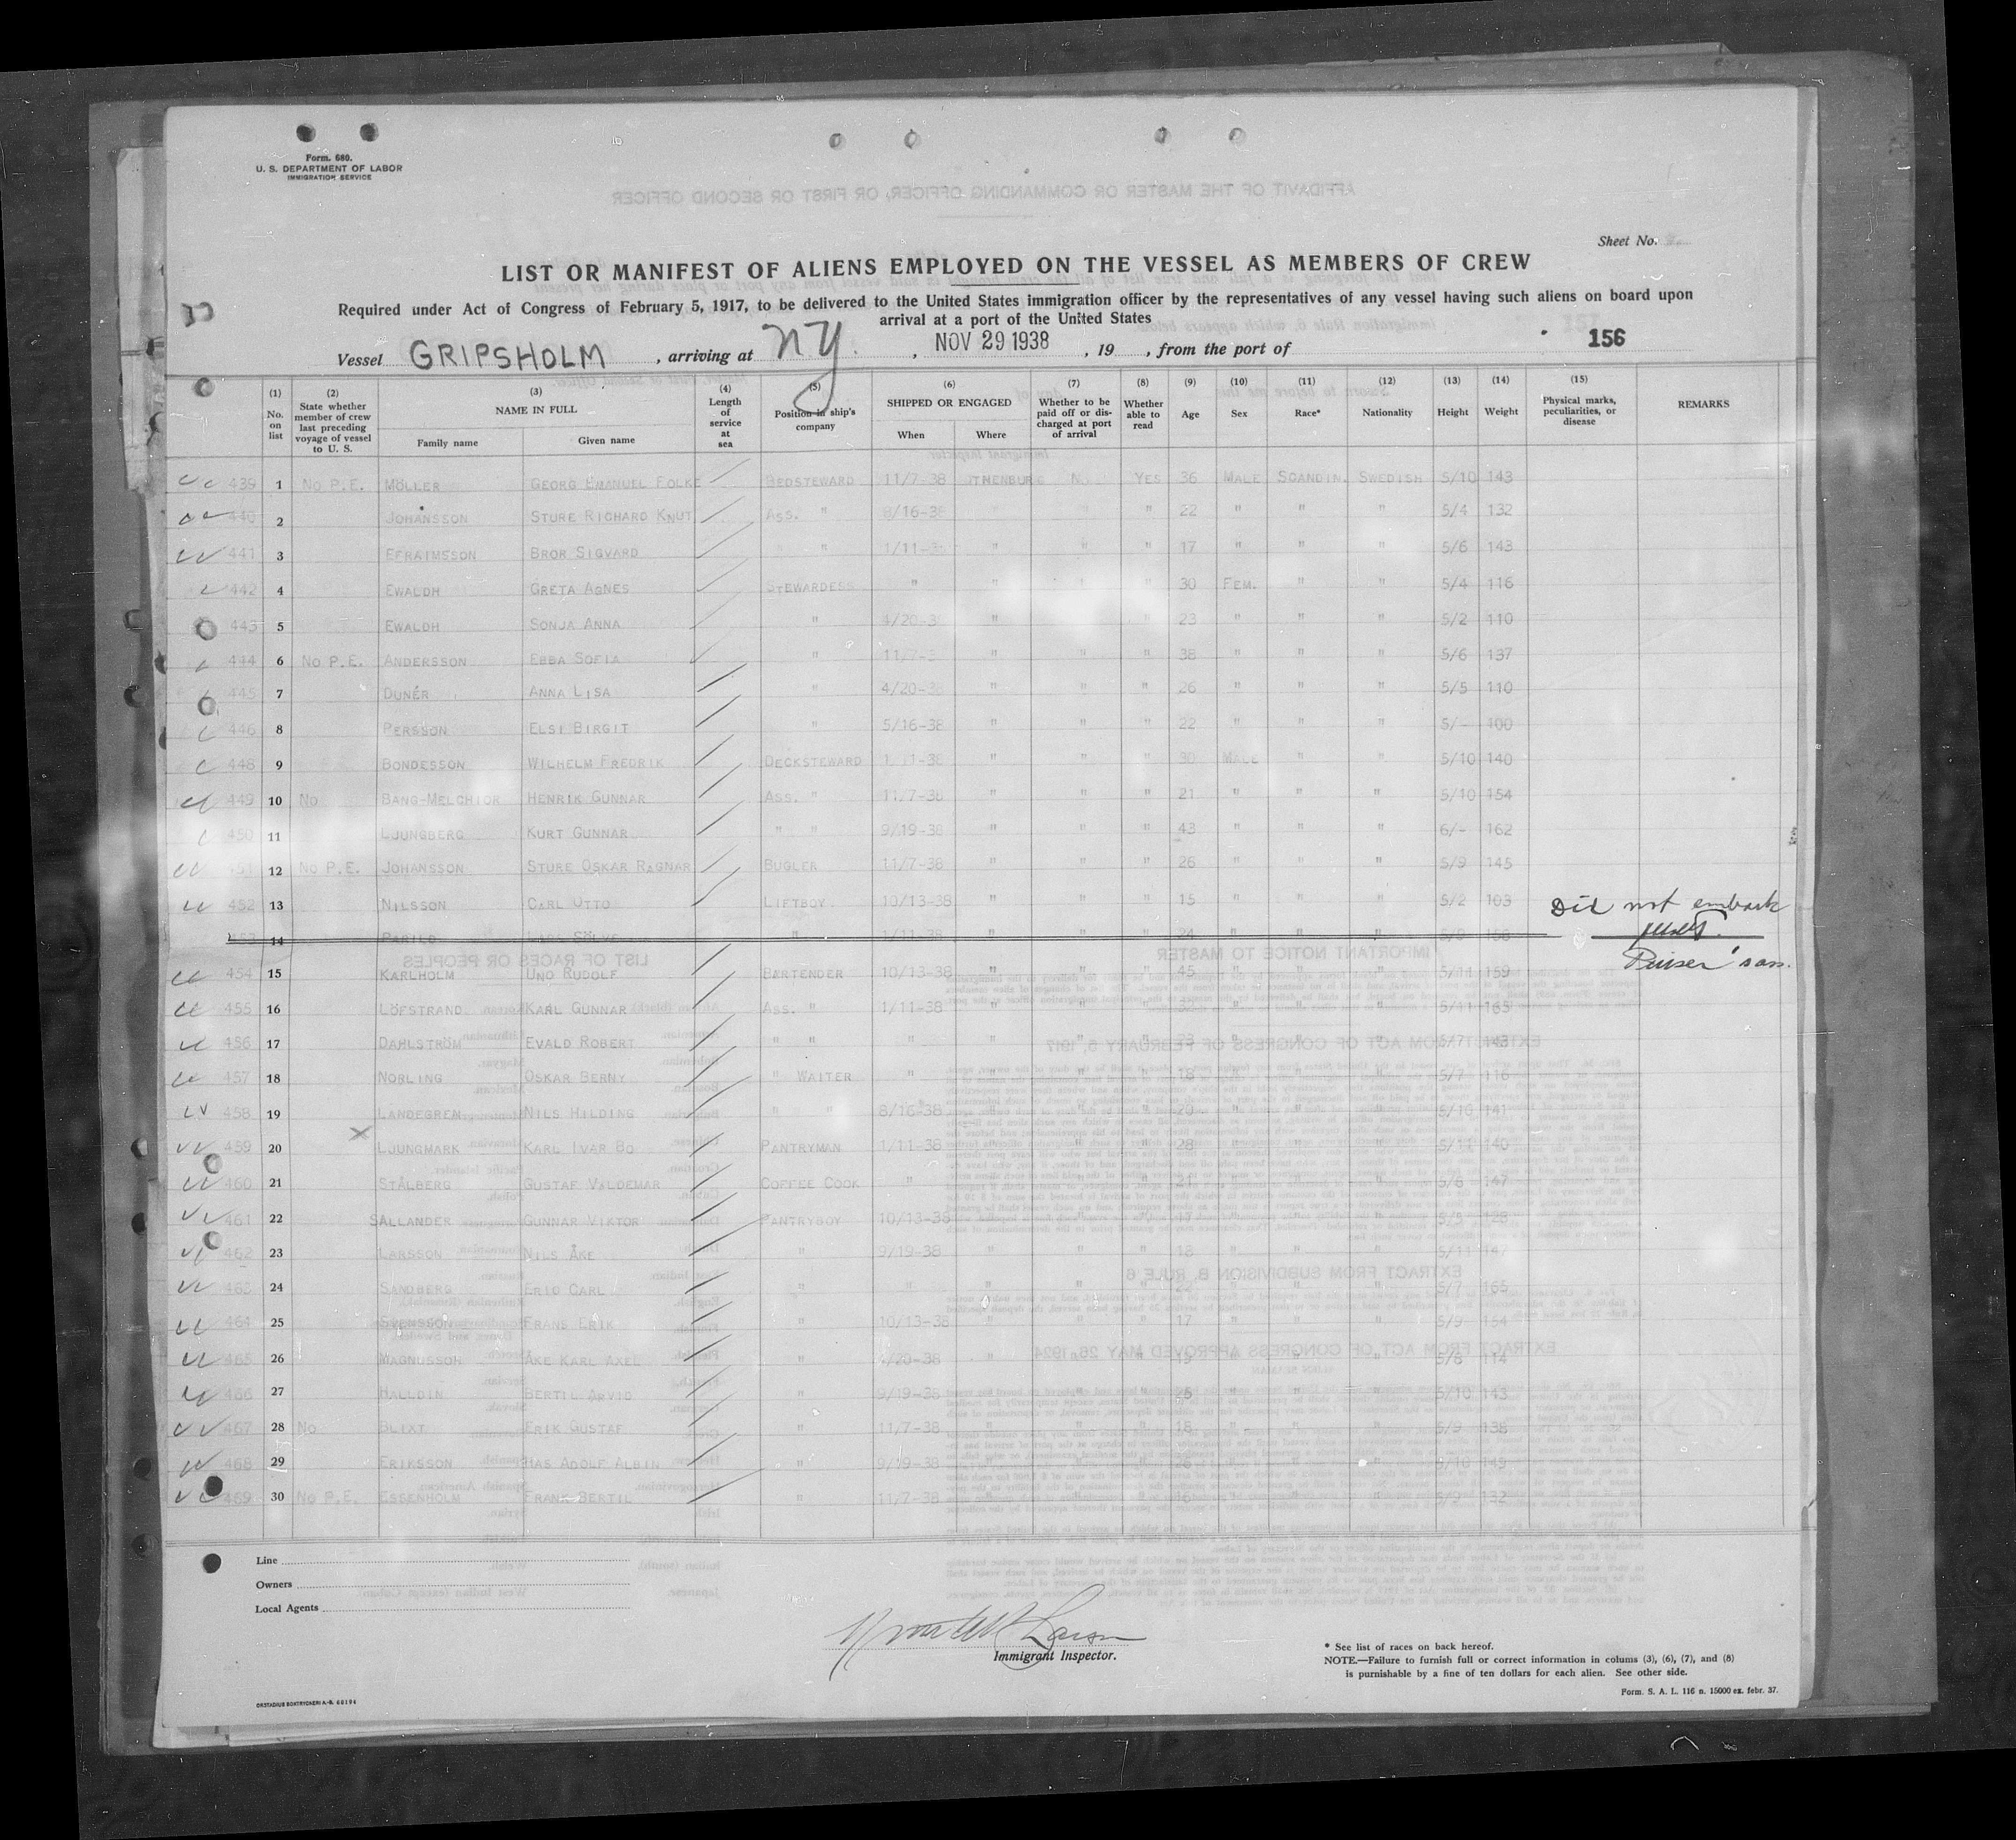 Form. 680.
U. S. DEPARTMENT OF LABOR
IMMIGRATION SERVICE
Sheet No.
LIST OR MANIFEST OF ALIENS EMPLOYED ON THE VESSEL AS MEMBERS OF CREW
Required under Act of Congress of February 5, 1917, to be delivered to the United States immigration officer by the representatives of any vessel having such aliens on board upon
arrival at a port of the United States
Vessel GRIPSHOLM, arriving at NY., NOV 29 1938, 19, from the port of 156
(1) No. on list (2) State whether member of crew last preceding voyage of vessel to U. S. (3) NAME IN FULL Family name Given name (4) Length of service at sea (5) Position in ship's company (6) SHIPPED OR ENGAGED When Where (7) Whether to be paid off or discharged at port of arrival (8) Whether able to read (9) Age (10) Sex (11) Race* (12) Nationality (13) Height (14) Weight (15) Physical marks, peculiarities, or disease REMARKS
439 1 No P.E. MÖLLER GEORG EMANUEL FOLKE BEDSTEWARD 11/7-38 YES 36 MALE SCANDIN. SWEDISH 5/10 143
440 2 JOHANSSON STURE RICHARD KNUT ASS. " 8/16-38 " 22 " " " 5/4 132
441 3 EFRAIMSSON BROR SIGVARD " " 1/11-38 " " " 17 " " " 5/6 143
442 4 EWALDH GRETA AGNES STEWARDESS " " " 30 FEM. " " 5/4 116
443 5 EWALDH SONJA ANNA " 4/20-38 " " 23 " " " 5/2 110
444 6 No P.E. ANDERSSON EBBA SOFIA " 11/7-3 " " " 38 " " " 5/6 137
445 7 DUNÉR ANNA LISA " 4/20-38 " " " 26 " " " 5/5 110
446 8 PERSSON ELSI BIRGIT " 5/16-38 " " " 22 " " " 5/- 100
448 9 BONDESSON WILHELM FREDRIK DECKSTEWARD 1/11-38 " " " 30 MALE " " 5/10 140
449 10 No BANG-MELCHIOR HENRIK GUNNAR ASS. " 11/7-38 " " " 21 " " " 5/10 154
450 11 LJUNGBERG KURT GUNNAR " " 9/19-38 " " " 43 " " " 6/- 162
451 12 No P.E. JOHANSSON STURE OSKAR RAGNAR BUGLER 11/7-38 " " " 26 " " " 5/9 145
452 13 NILSSON CARL OTTO LIFTBOY 10/13-38 " " " 15 " " " 5/2 103 Did not embark
453 14 " 1/11-38 " " " 24 " " "
454 15 KARLHOLM UNO RUDOLF BARTENDER 10/13-38 " " " 45 " " " 5/11 159
455 16 LÖFSTRAND KARL GUNNAR ASS. " 1/11-38 " " " " " " 5/11 163
456 17 DAHLSTRÖM EVALD ROBERT " " " " " " " " " 5/7 143
457 18 NORLING OSKAR BERNY " WAITER " " " " 18 " " " 5/7 116
458 19 LANDEGREN NILS HILDING " " 8/16-38 " " " 20 " " " 5/10 141
459 20 LJUNGMARK KARL IVAR BO PANTRYMAN 1/11-38 " " " 28 " " " 5/11 140
460 21 STÅLBERG GUSTAF VALDEMAR COFFEE COOK " " " " 21 " " " 5/6 147
461 22 SÄLLANDER GUNNAR VIKTOR PANTRYBOY 10/13-38 " " " 17 " " " 5/9 128
462 23 LARSSON NILS ÅKE " 9/19-38 " " " 18 " " " 5/11 147
463 24 SANDBERG ERIC CARL " " " " " " " " 5/7 165
464 25 SVENSSON FRANS ERIK " 10/13-38 " " " 17 " " " 5/9 154
465 26 MAGNUSSON ÅKE KARL AXEL " 4/20-38 " " " 19 " " " 5/8 114
466 27 HALLDIN BERTIL ARVID " 9/19-38 " " " 25 " " " 5/10 143
467 28 No BLIXT ERIK GUSTAF " 11/7-38 " " " 18 " " " 5/9 138
468 29 ERIKSSON HAS ADOLF ALBIN " 9/19-38 " " " 26 " " " 5/10 149
469 30 No P.E. ESSENHOLM FRANK BERTIL " 11/7-38 " " " 16 " " " 5/9 132
Line
Owners
Local Agents
Immigrant Inspector.
* See list of races on back hereof.
NOTE.—Failure to furnish full or correct information in colums (3), (6), (7), and (8)
is purnishable by a fine of ten dollars for each alien. See other side.
Form. S. A. L. 116 n. 15000 ex. febr. 37.